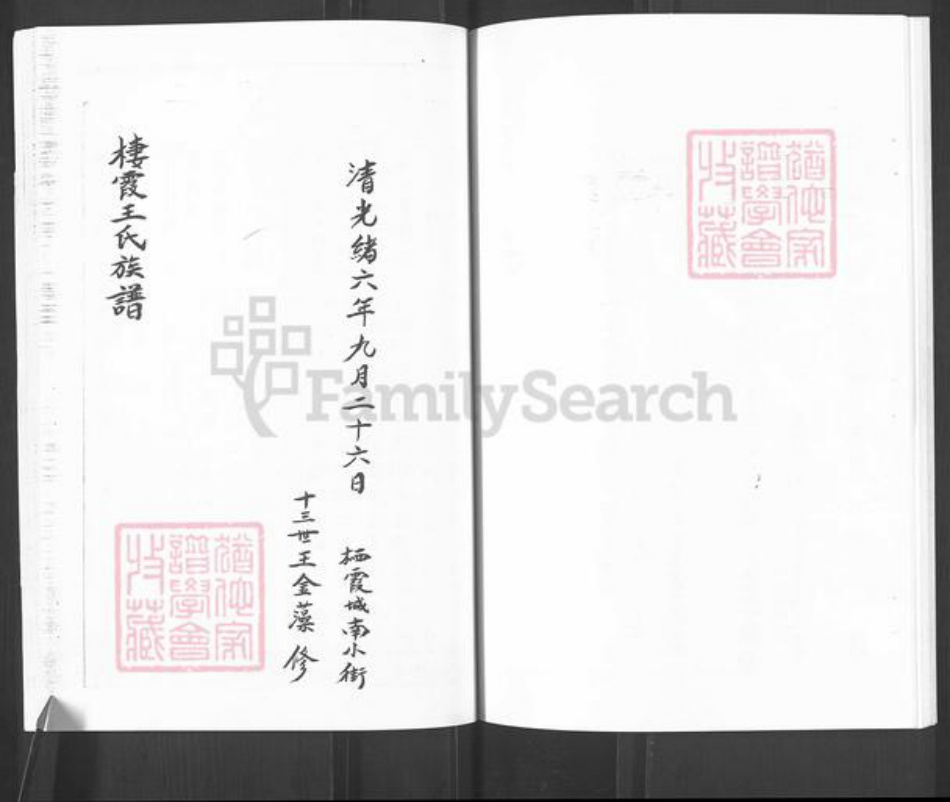 猶他家
譜學會
收藏
清光緒六年九月二十六日 栖霞城南小街
十三世王金藻修
棲霞王氏族譜
猶他家
譜學會
收藏
FamilySearch